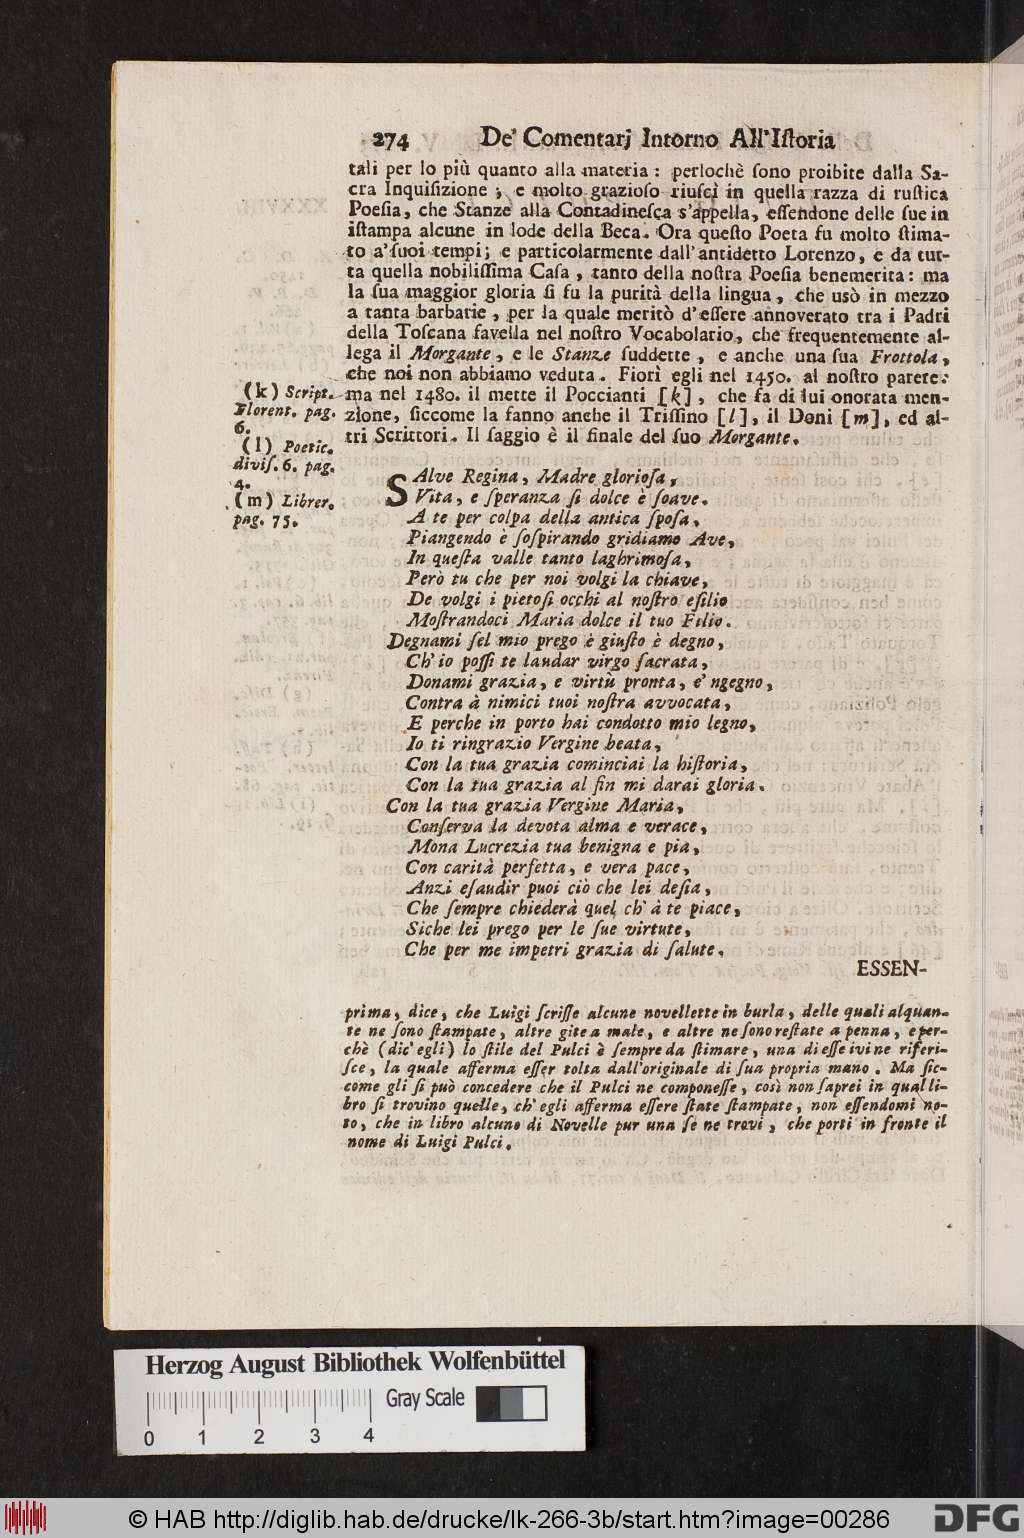 274 De' Comentarj Intorno All'Iſtoria
tali per lo più quanto alla materia: perlochè ſono proibite dalla Sa-
cra Inquiſizione; e molto grazioſo riuſcì in quella razza di ruſtica
Poeſia, che Stanze alla Contadineſca s'appella, eſſendone delle ſue in
iſtampa alcune in lode della Beca. Ora queſto Poeta fu molto ſtima-
to a'ſuoi tempi; e particolarmente dall'antidetto Lorenzo, e da tut-
ta quella nobiliſſima Caſa, tanto della noſtra Poeſia benemerita: ma
la ſua maggior gloria ſi fu la purità della lingua, che usò in mezzo
a tanta barbarie, per la quale meritò d'eſſere annoverato tra i Padri
della Toſcana favella nel noſtro Vocabolario, che frequentemente al-
lega il Morgante, e le Stanze ſuddette, e anche una ſua Frottola,
che noi non abbiamo veduta. Fiorì egli nel 1450. al noſtro parere:
ma nel 1480. il mette il Poccianti [k], che fa di lui onorata men-
zione, ſiccome la fanno anche il Triſſino [l], il Doni [m], ed al-
tri Scrittori. Il ſaggio è il finale del ſuo Morgante.
(k) Script.
Florent. pag.
6.
(l) Poetic.
diviſ. 6. pag.
4.
(m) Librer.
pag. 75.
SAlve Regina, Madre glorioſa,
Vita, e ſperanza ſi dolce è ſoave.
A te per colpa della antica ſpoſa,
Piangendo è ſoſpirando gridiamo Ave,
In queſta valle tanto laghrimoſa,
Però tu che per noi volgi la chiave,
De volgi i pietoſi occhi al noſtro eſilio
Moſtrandoci Maria dolce il tuo Filio.
Degnami ſel mio prego è giuſto è degno,
Ch' io poſſi te laudar virgo ſacrata,
Donami grazia, e virtù pronta, e' ngegno,
Contra à nimici tuoi noſtra avvocata,
E perche in porto hai condotto mio legno,
Io ti ringrazio Vergine beata,
Con la tua grazia cominciai la hiſtoria,
Con la tua grazia al fin mi darai gloria.
Con la tua grazia Vergine Maria,
Conſerva la devota alma e verace,
Mona Lucrezia tua benigna e pia,
Con carità perfetta, e vera pace,
Anzi eſaudir puoi ciò che lei deſia,
Che ſempre chiederà quel ch' à te piace,
Siche lei prego per le ſue virtute,
Che per me impetri grazia di ſalute.
ESSEN-
prima, dice, che Luigi ſcriſſe alcune novellette in burla, delle quali alquan-
te ne ſono ſtampate, altre gite a male, e altre ne ſono reſtate a penna, e per-
chè (dic' egli) lo ſtile del Pulci è ſempre da ſtimare, una di eſſe ivi ne riferi-
ſce, la quale afferma eſſer tolta dall'originale di ſua propria mano. Ma ſic-
come gli ſi può concedere che il Pulci ne componeſſe, così non ſaprei in qual li-
bro ſi trovino quelle, ch' egli afferma eſſere ſtate ſtampate, non eſſendomi no-
to, che in libro alcuno di Novelle pur una ſe ne trovi, che porti in fronte il
nome di Luigi Pulci.
Herzog August Bibliothek Wolfenbüttel
Gray Scale
0 1 2 3 4
© HAB http://diglib.hab.de/drucke/lk-266-3b/start.htm?image=00286
DFG